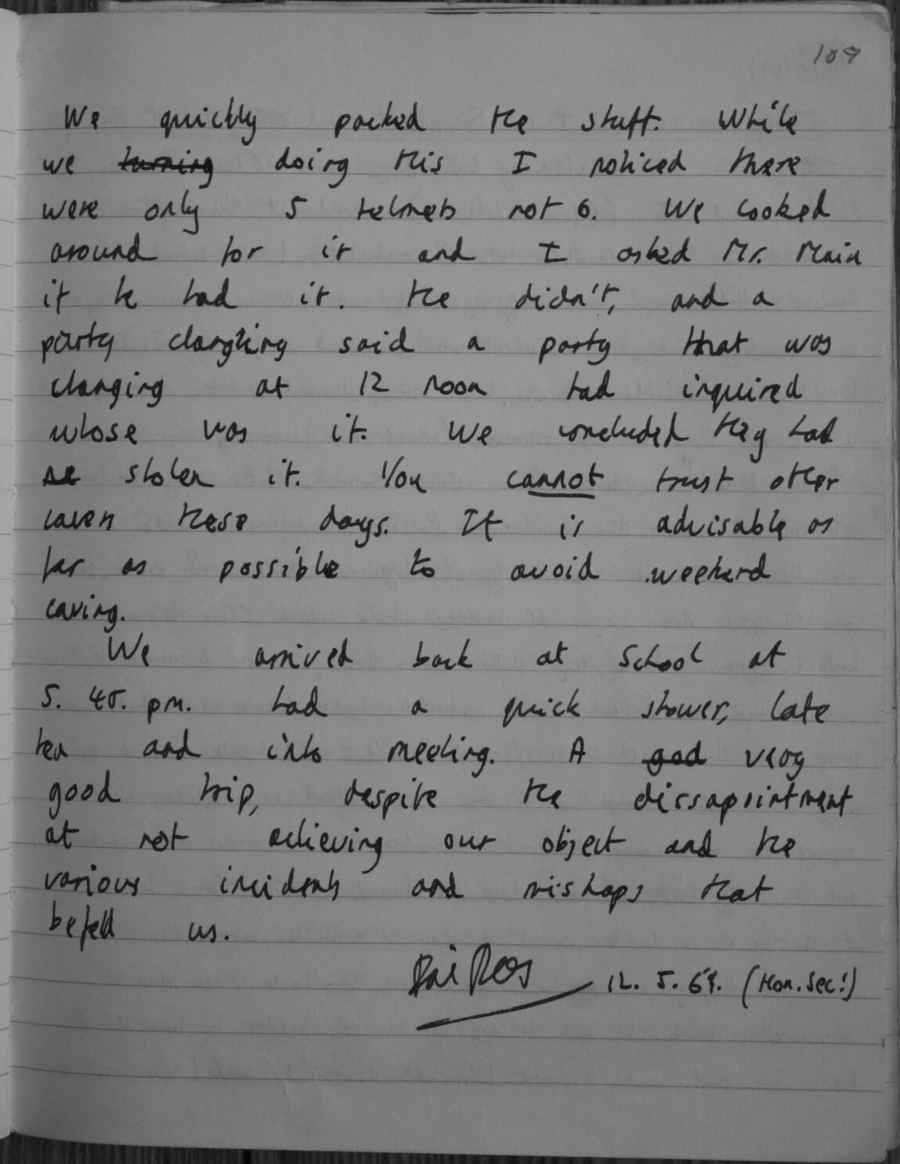 109
We quickly packed the stuff. While
we turning doing this I noticed there
were only 5 helmets not 6. We looked
around for it and I asked Mr. Main
if he had it. He didn't, and a
party clanging said a party that was
changing at 12 noon had inquired
whose was it. We concluded they had
stolen it. You cannot trust other
cavers these days. It is advisable as
far as possible to avoid weekend
caving.
We arrived back at School at
5. 45. pm. had a quick shower, late
tea and into meeting. A good very
good trip, despite the dissapointment
at not achieving our object and the
various incidents and mishaps that
befell us.
12. 5. 69. (Hon. Sec!)